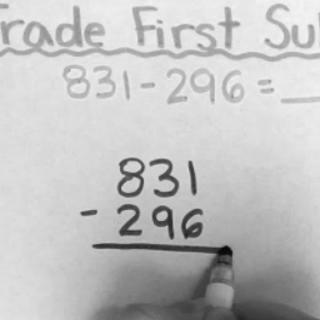 rade First Su
831-296=__
831
- 296